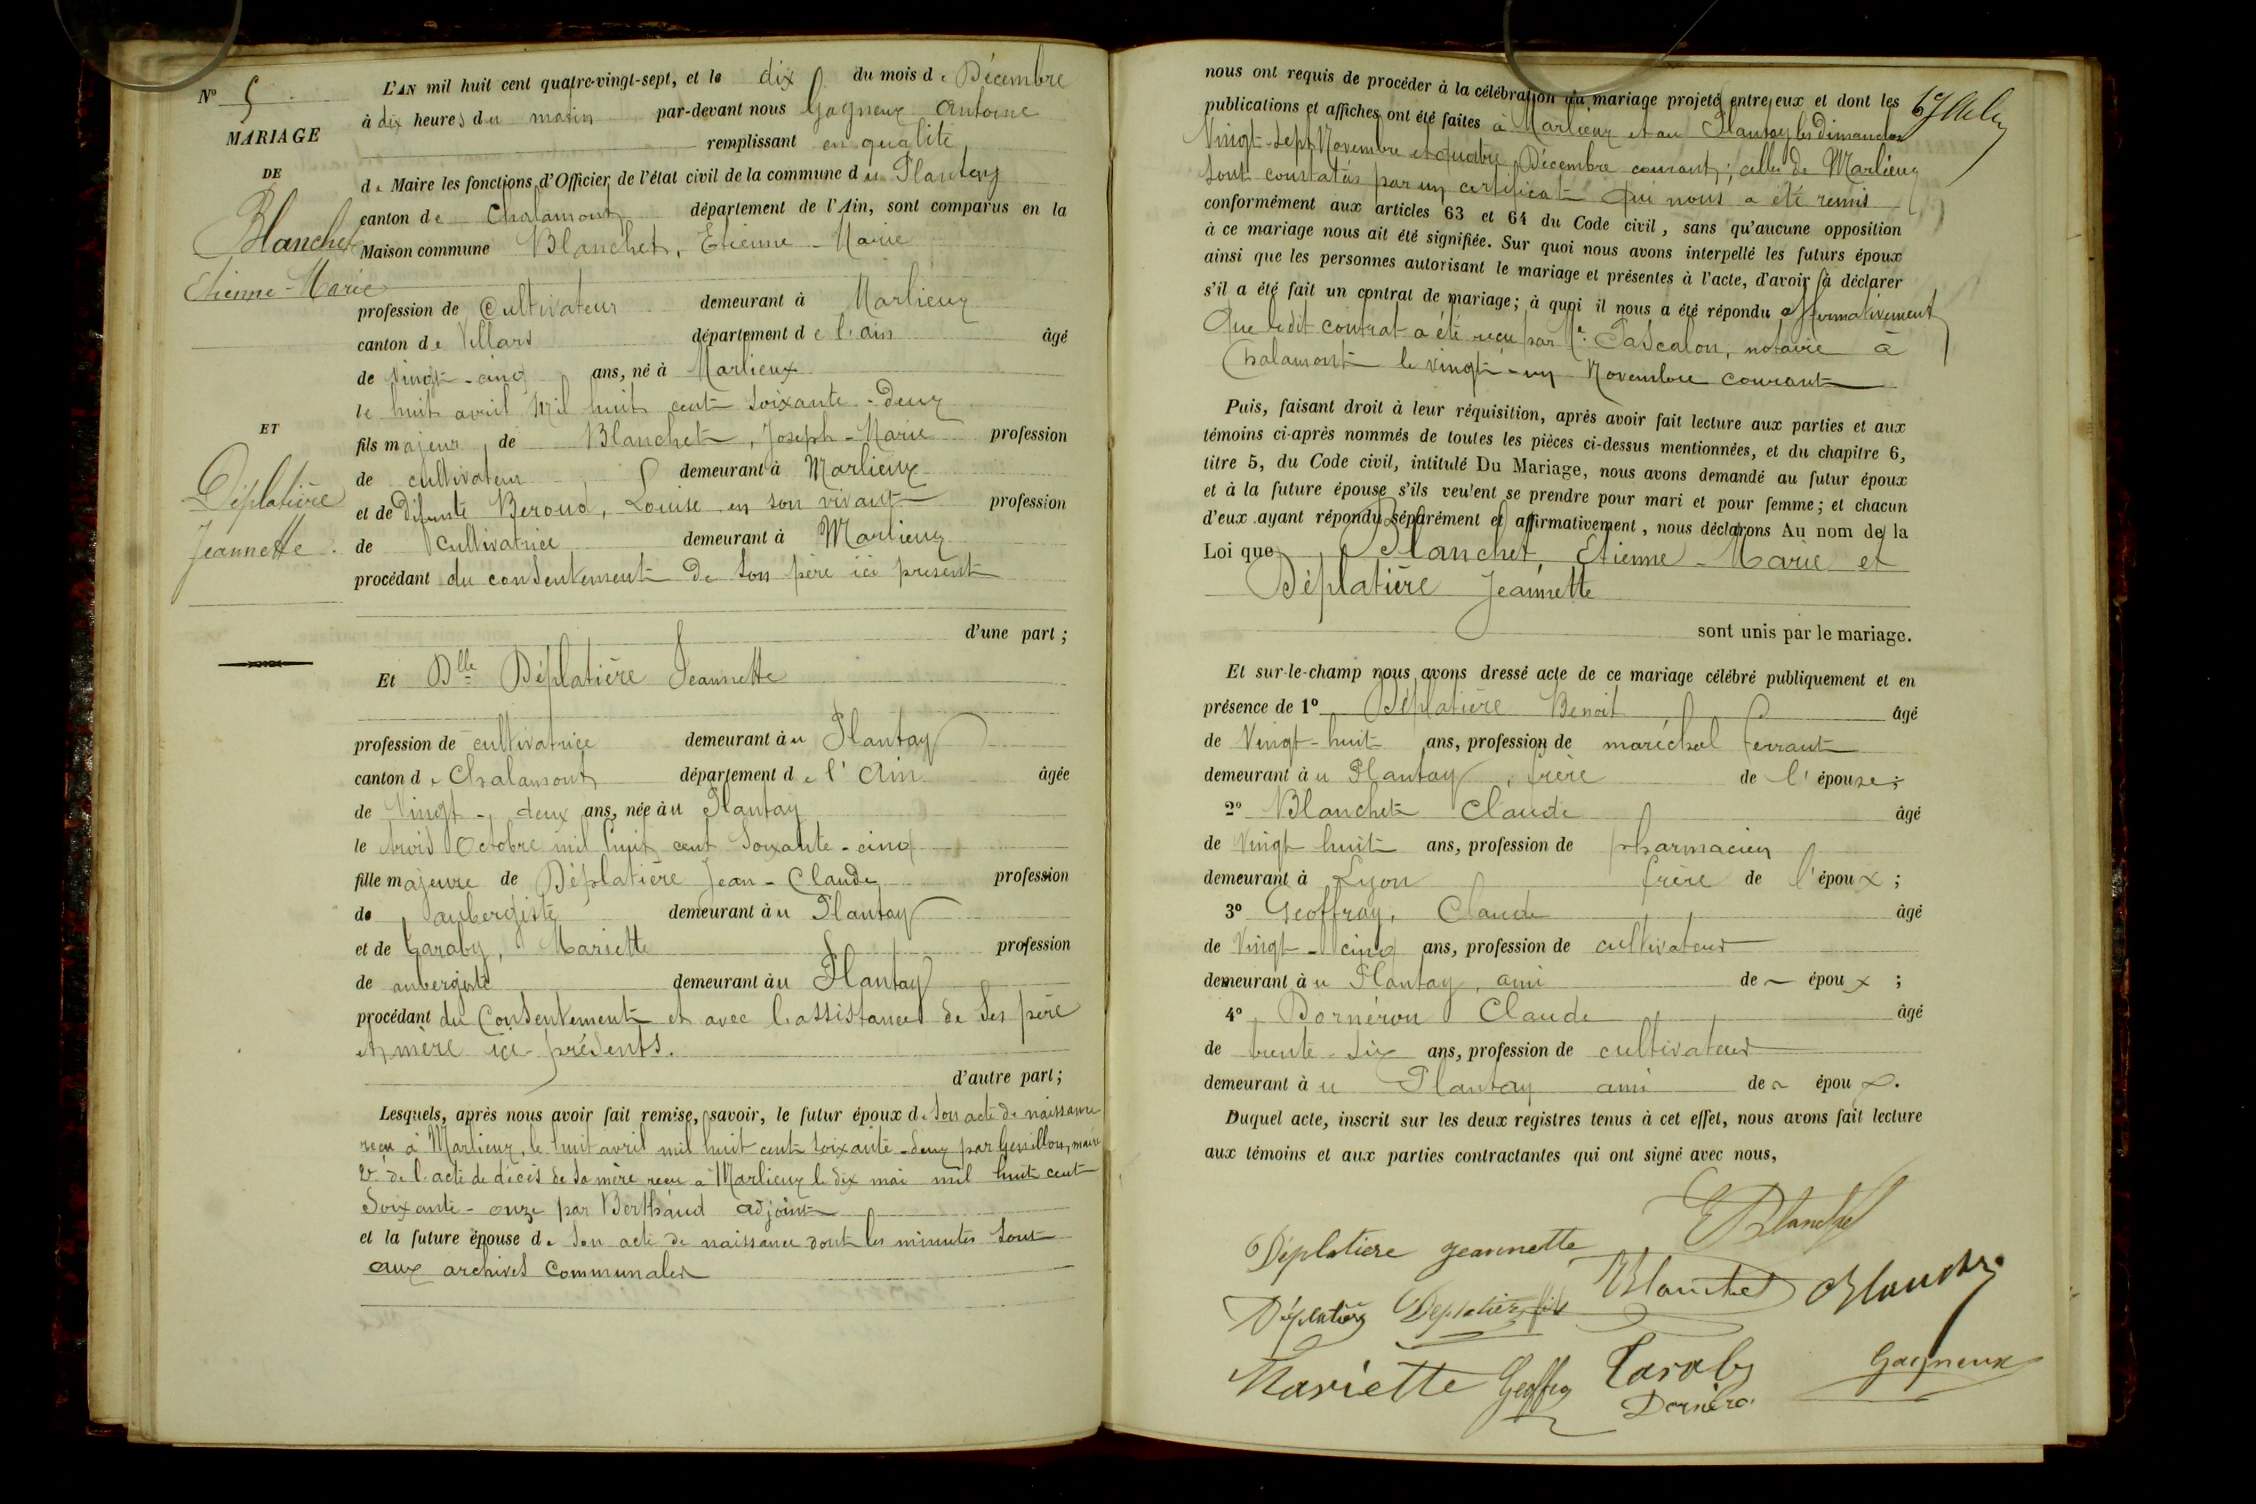 N° 5
MARIAGE
DE
Blanchet
Etienne-Marie
ET
Déplatière
Jeannette.
L'AN mil huit cent quatre-vingt-sept, et le dix du mois de Décembre
à dix heures du matin par-devant nous Gagneux Antoine
remplissant en qualité
de Maire les fonctions d'Officier de l'état civil de la commune du Plantay
canton de Chalamont département de l'Ain, sont comparus en la
Maison commune Blanchet, Etienne-Marie
profession de Cultivateur demeurant à Marlieux
canton de Villars département de l'ain âgé
de Vingt-cinq ans, né à Marlieux
le huit avril mil huit cent soixante-deux
fils majeur de Blanchet, Joseph-Marie profession
de cultivateur demeurant à Marlieux
et de défunte Beroud, Louise en son vivant profession
de Cultivatrice demeurant à Marlieux
procédant du consentement de son père ici présent
d'une part;
Et Dlle Déplatière Jeannette
profession de cultivatrice demeurant àu Plantay
canton de Chalamont département de l'Ain âgée
de Vingt-deux ans, née àu Plantay
le trois Octobre mil huit cent soixante-cinq
fille majeure de Déplatière Jean-Claude profession
de aubergiste demeurant àu Plantay
et de Taraby, Mariette profession
de aubergiste demeurant àu Plantay
procédant du consentement et avec l'assistance de ses père
et mère ici présents.
d'autre part;
Lesquels, après nous avoir fait remise, savoir, le futur époux de son acte de naissance
reçu à Marlieux, le huit avril mil huit cent soixante-deux par maire
2° de l'acte de décès de sa mère reçu à Marlieux le dix mai mil huit cent
soixante-onze par Berthaud adjoint
et la future épouse de son acte de naissance dont les minutes sont
aux archives communales
nous ont requis de procéder à la célébration du mariage projeté entre eux et dont les
publications et affiches ont été faites à Marlieux et au Plantay les dimanches
Vingt-sept Novembre et quatre Décembre courant; celles de Marlieux
sont constatées par un certificat qui nous a été remis
conformément aux articles 63 et 64 du Code civil, sans qu'aucune opposition
à ce mariage nous ait été signifiée. Sur quoi nous avons interpellé les futurs époux
ainsi que les personnes autorisant le mariage et présentes à l'acte, d'avoir à déclarer
s'il a été fait un contrat de mariage; à quoi il nous a été répondu affirmativement
Que le dit contrat a été reçu par Me Pascalon, notaire à
Chalamont le vingt-un Novembre courant
Puis, faisant droit à leur réquisition, après avoir fait lecture aux parties et aux
témoins ci-après nommés de toutes les pièces ci-dessus mentionnées, et du chapitre 6,
titre 5, du Code civil, intitulé Du Mariage, nous avons demandé au futur époux
et à la future épouse s'ils veulent se prendre pour mari et pour femme; et chacun
d'eux ayant répondu séparément et affirmativement, nous déclarons Au nom de la
Loi que Blanchet, Etienne-Marie et
Déplatière Jeannette
sont unis par le mariage.
Et sur-le-champ nous avons dressé acte de ce mariage célébré publiquement et en
présence de 1° Déplatière Benoit âgé
de Vingt-huit ans, profession de maréchal ferrant
demeurant àu Plantay, frère de l'épouse;
2° Blanchet Claude âgé
de Vingt huit ans, profession de pharmacien
demeurant à Lyon frère de l'époux;
3° Geoffray, Claude âgé
de Vingt-cinq ans, profession de cultivateur
demeurant àu Plantay, ami de ~ époux;
4° Dornéron Claude âgé
de trente-six ans, profession de cultivateur
demeurant àu Plantay ami de ~ époux.
Duquel acte, inscrit sur les deux registres tenus à cet effet, nous avons fait lecture
aux témoins et aux parties contractantes qui ont signé avec nous,
E Blanchet
Déplatiere jeannette
Blanchet Blanchet
Déplatière Deplatière fils
Mariette Geoffray Taraby Gagneux